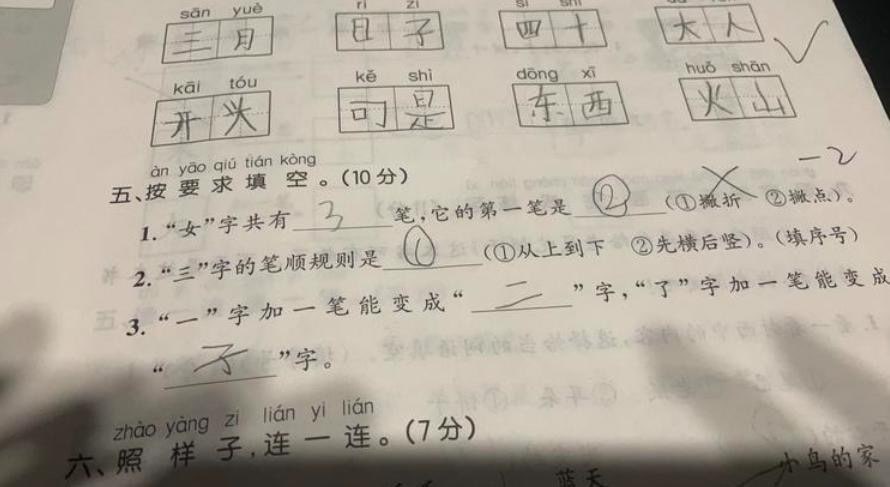 sān yuè rì zǐ sì shí
三月 日子 四十 大人
kāi tóu kě shì dōng xī huǒ shān
开头 可是 东西 火山
àn yāo qiú tián kòng
五、按要求填空。(10分) -2
1. “女”字共有 3 笔,它的第一笔是 ② (①撇折 ②撇点)。
2. “三”字的笔顺规则是 ① (①从上到下 ②先横后竖)。(填序号)
3. “一”字加一笔能变成“ 二 ”字,“了”字加一笔能变成
“ 子 ”字。
zhào yàng zi lián yi lián
六、照样子,连一连。(7分)
蓝天 小鸟的家